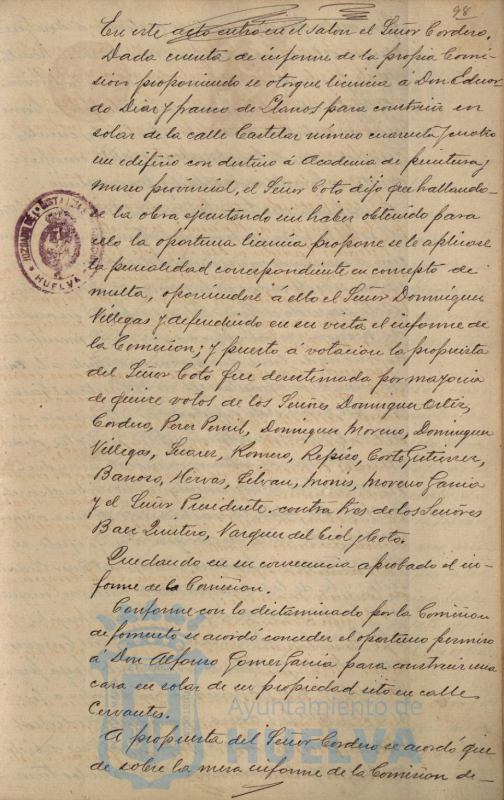 98
En este acto entró en el salon el Señor Cordero.
Dada cuenta de informe de la propia Comi-
sion proponiendo se otorgue licencia á Don Eduar
do Diaz y franco de Llanos para construir en
solar de la calle Castelar número cuarenta y cuatro
un edificio con destino á Academia de pintura y
museo provincial, el Señor Coto dijo que hallando-
se la obra ejecutando sin haber obtenido para
ello la oportuna licencia propone se le aplicase
la penalidad correspondiente en concepto de
multa, oponiendose á ello el Señor Dominguez
Villegas y defendiendo en su vista el informe de
la Comision; y puesto á votacion la propuesta
del Señor Coto fué desestimada por mayoria
de quince votos de los Señores Dominguez Ortiz,
Cordero, Perez Pernil, Dominguez Moreno, Dominguez
Villegas, Suarez, Romero, Repiso, Corte Gutierrez,
Barroso, Hervas, Silvan, Monis, Moreno Garcia
y el Señor Presidente contra tres de los Señores
Baez Quintero, Vazquez del Cid y Coto.
Quedando en su consecuencia aprobado el in-
forme de la Comision.
Conforme con lo dictaminado por la Comision
de fomento se acordó conceder el oportuno permiso
á Don Alfonso Gomez Garcia para construir una
casa en solar de su propiedad sito en calle
Cervantes.
A propuesta del Señor Cordero se acordó que
de sobre la mesa informe de la Comision de-
HUELVA
Ayuntamiento de
HUELVA